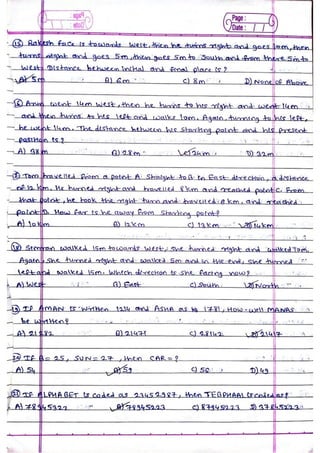 Page :
Date : / /
(15) Rakesh Face is towards West, then he turns right and goes 10m, then
turns right and goes 5m, then goes 5m to South and from there 5m to
West. Distance between initial and final place is?
A) 5m B) 6m C) 8m D) None of Above
(16) Arun went 14m west, then he turns to his right and went 14m
and then turns to his left and walks 10m. Again, turning to his left,
he went 14m. The distance between his starting point and his present
position is?
A) 38m B) 28m C) 24m D) 32m
Tom travelled from a point A straight to B in East direction, a distance
of 12 km. He turned right and travelled 8 km and reached point C. From
that point, he took the right turn and travelled km, and reached
point D. How far is he away from starting point?
A) 10km B) 12km C) 13km D) 14km
(18) Simran walked 15m towards West, she turned right and walked 10m
Again, she turned right and walked 5m and in the end, she turned
left and walked 15m. Which direction is she facing now?
A) West B) East C) South D) North
(19) If AMAN is written 1214 and ASHA as 1781, How will MANAS
be written?
A) 21282 B) 21471 C) 28142 D) 21417
(20) If B = 25, SUN = 27, then CAR = ?
A) 54 B) 59 C) 58 D) 49
(21) If ALPHABET is coded as 23452987, then TEBPHAAL is coded as?
A) 78945322 B) 78945223 C) 87945223 D) 37845223